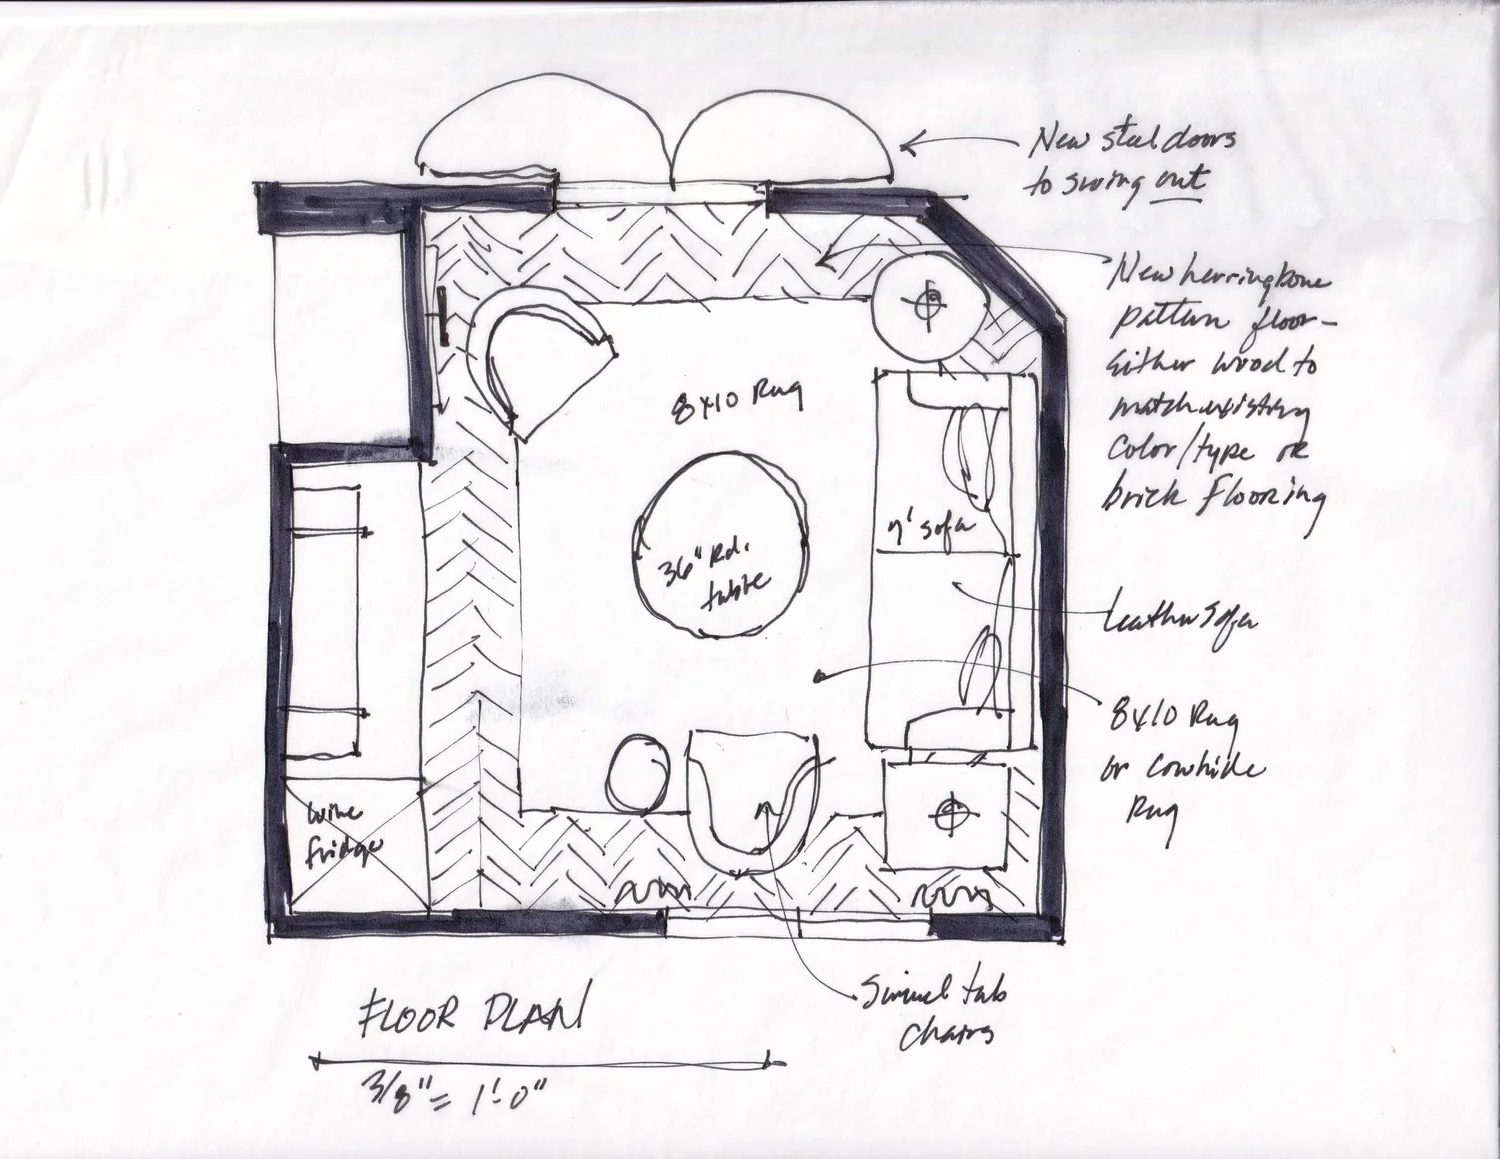 New steel doors
to swing out
New herringbone
pattern floor-
either wood to
match existing
color/type or
brick flooring
8x10 Rug
36" Rd.
table
7' sofa
leather sofa
8x10 Rug
or cowhide
Rug
wine
fridge
Swivel tub
chairs
FLOOR PLAN
3/8" = 1'-0"